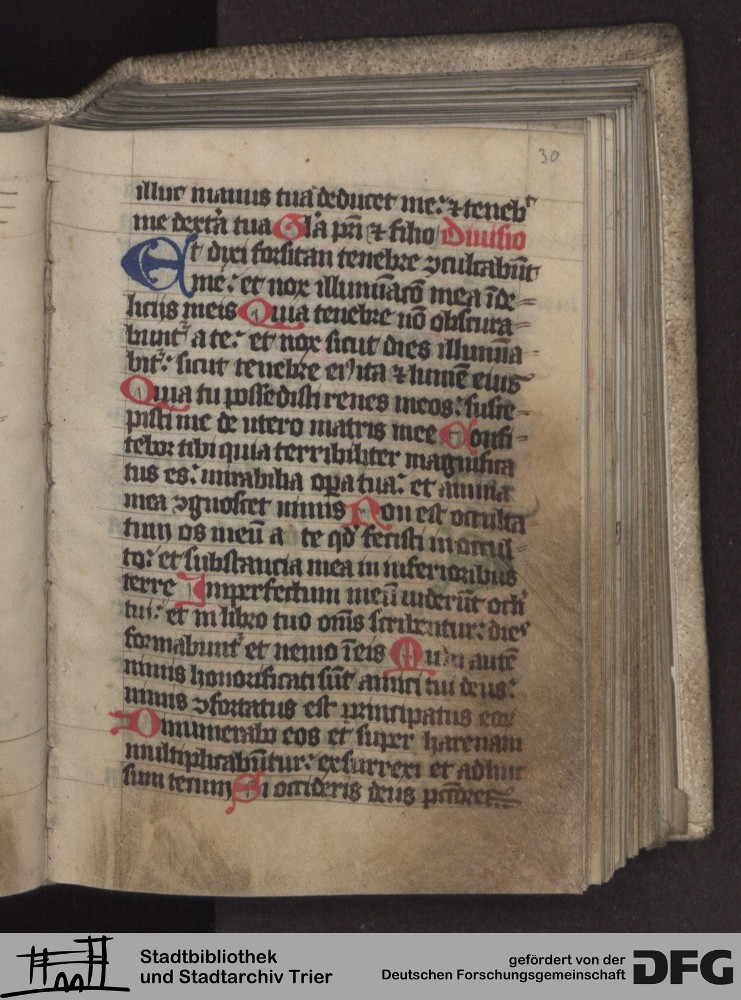 30
illuc manus tua deducet me: ⁊ teneb᷑
me dext̾a tua Gl̃a pr̃i ⁊ filio Diuisio
Et dixi forsitan tenebre ꝯculcabũt
me: et nox illumĩacõ mea ĩ de=
licijs meis Quia tenebre nõ obscura=
bunt᷑ a te: et nox sicut dies illumĩa=
bit᷑: sicut tenebre eiꝰ ita ⁊ lumẽ eius
Quia tu possedisti renes meos: susce=
pisti me de utero matris mee Confi=
tebor tibi quia terribiliter magnifica
tus es: mirabilia oꝑa tua: et anima
mea ꝯgnoscet nimis Non est occulta
tum os meũ a te qd̾ fecisti in occul=
to: et substancia mea in inferioribus
terre Imperfectum meũ uiderũt oc̾li
tui: et in libro tuo om̃s scribentur: dies
formabunt᷑ et nemo ĩ eis Mihi autẽ
nimis honorificati sũt amici tui deus:
nimis ꝯfortatus est principatus eoꝝ
Dinumerabo eos et super harenam
multiplicabũtur: exsurrexi et adhuc
sum tecum Si occideris deus pc̃ores
Stadtbibliothek
und Stadtarchiv Trier
gefördert von der
Deutschen Forschungsgemeinschaft
DFG